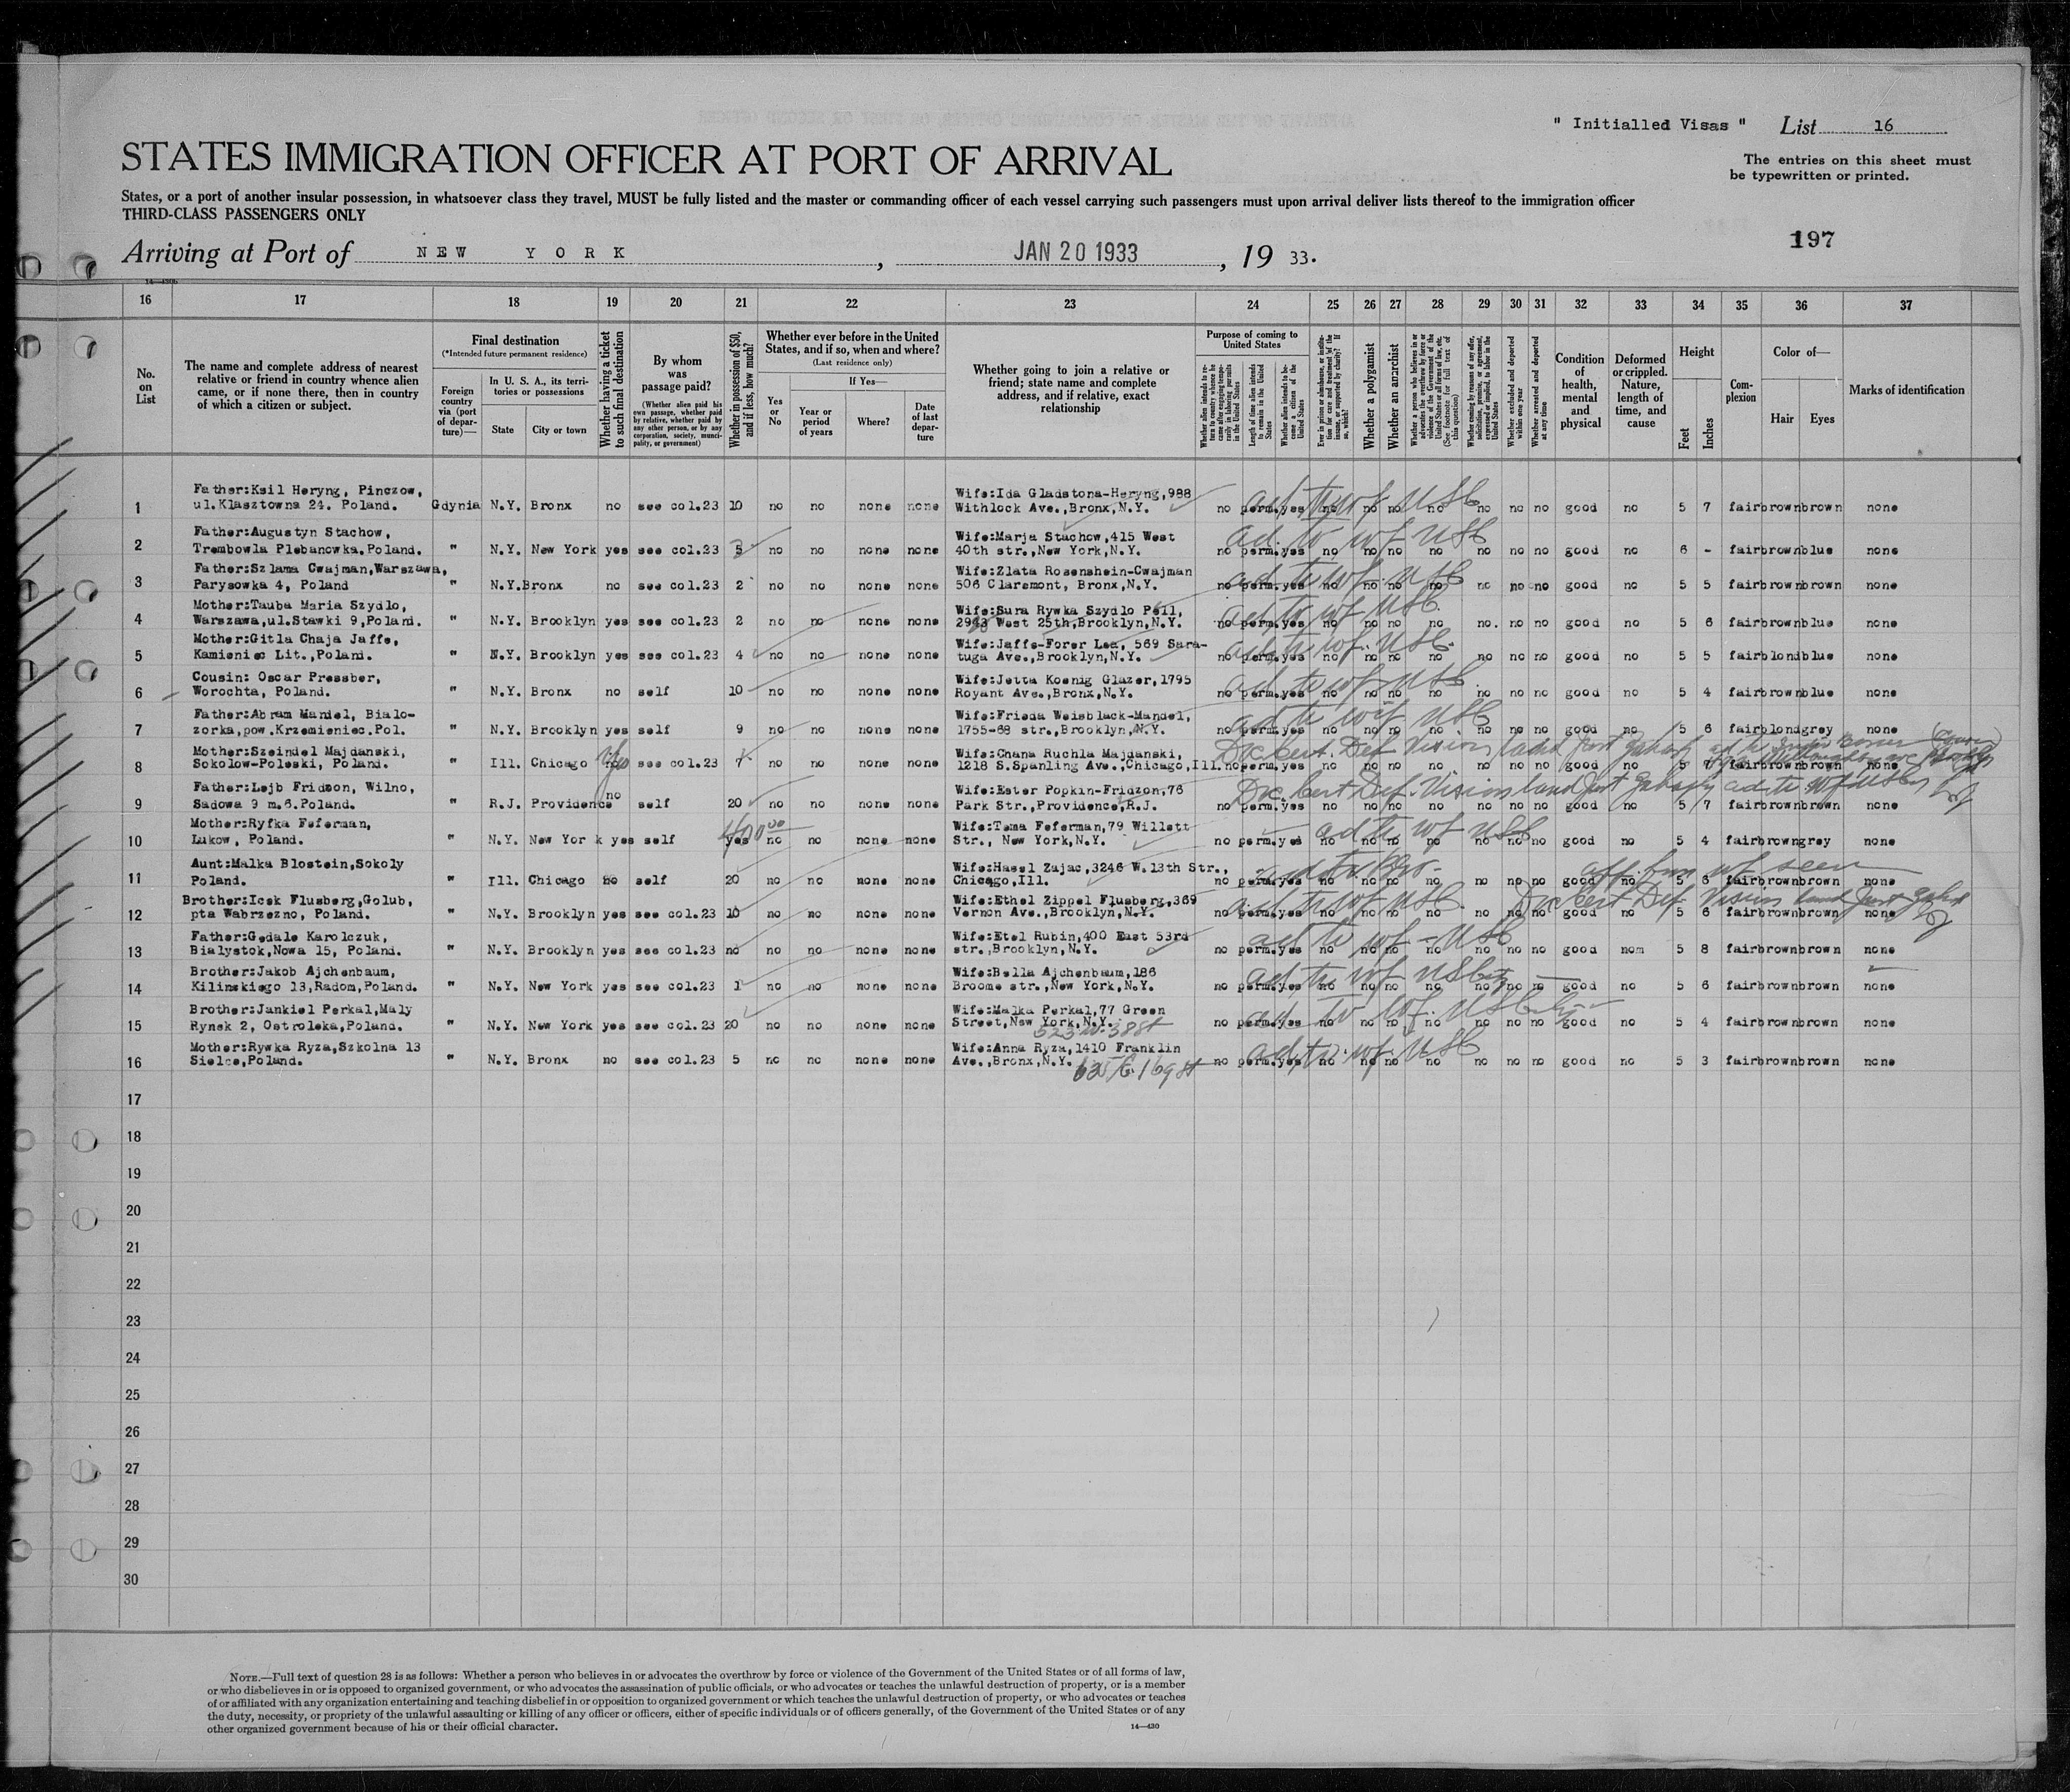 " Initialled Visas " List 16
STATES IMMIGRATION OFFICER AT PORT OF ARRIVAL
The entries on this sheet must
be typewritten or printed.
States, or a port of another insular possession, in whatsoever class they travel, MUST be fully listed and the master or commanding officer of each vessel carrying such passengers must upon arrival deliver lists thereof to the immigration officer
THIRD-CLASS PASSENGERS ONLY
197
Arriving at Port of NEW YORK, JAN 20 1933, 19 33.
14—430b
16 17 18 19 20 21 22 23 24 25 26 27 28 29 30 31 32 33 34 35 36 37
No. on List
The name and complete address of nearest relative or friend in country whence alien came, or if none there, then in country of which a citizen or subject.
Final destination
(*Intended future permanent residence)
Foreign country via (port of departure)—
In U. S. A., its territories or possessions
State
City or town
Whether having a ticket to such final destination
By whom was passage paid?
(Whether alien paid his own passage, whether paid by relative, whether paid by any other person, or by any corporation, society, municipality, or government)
Whether in possession of $50, and if less, how much?
Whether ever before in the United States, and if so, when and where?
(Last residence only)
Yes or No
If Yes—
Year or period of years
Where?
Date of last departure
Whether going to join a relative or friend; state name and complete address, and if relative, exact relationship
Purpose of coming to United States
Length of time alien intends to remain in the United States
Whether alien intends to become a citizen of the United States
Whether a polygamist
Whether an anarchist
Whether excluded and deported within one year
Whether arrested and deported at any time
Condition of health, mental and physical
Deformed or crippled. Nature, length of time, and cause
Height
Feet
Inches
Complexion
Color of—
Hair
Eyes
Marks of identification
1 Father:Ksil Heryng, Pinczow,
ul.Klasztowna 24. Poland. Gdynia N.Y. Bronx no see col.23 10 no no none none Wife:Ida Gladstona-Heryng,988
Withlock Ave.,Bronx,N.Y. no perm.yes no no no no no no no good no 5 7 fair brown brown none
ad to wf USC
2 Father:Augustyn Stachow,
Trembowla Plebanowka.Poland. " N.Y. New York yes see col.23 5 no no none none Wife:Marja Stachow,415 West
40th str.,New York,N.Y. no perm.yes no no no no no no no good no 6 - fair brown blue none
ad to wf USC
3 Father:Szlama Cwajman,Warszawa,
Parysowka 4, Poland " N.Y. Bronx no see col.23 2 no no none none Wife:Zlata Rosenshein-Cwajman
506 Claremont, Bronx,N.Y. no perm.yes no no no no no no no good no 5 5 fair brown brown none
ad to wf USC
4 Mother:Tauba Maria Szydlo,
Warszawa,ul.Stawki 9,Poland. " N.Y. Brooklyn yes see col.23 2 no no none none Wife:Sura Rywka Szydlo Pell,
West 25th,Brooklyn,N.Y. no perm.yes no no no no no. no no good no 5 6 fair brown blue none
ad to wf USC
5 Mother:Gitla Chaja Jaffe,
Kamieniec Lit.,Poland. " N.Y. Brooklyn yes see col.23 4 no no none none Wife:Jaffe-Forer Lea, 569 Sara-
tuga Ave.,Brooklyn,N.Y. no perm.yes no no no no no no no good no 5 5 fair blond blue none
ad to wf USC
6 Cousin: Oscar Pressber,
Worochta, Poland. " N.Y. Bronx no self 10 no no none none Wife:Jetta Koenig Glazer,1795
Royant Ave.,Bronx,N.Y. no perm.yes no no no no no no no good no 5 4 fair brown blue none
ad to wf USC
7 Father:Abram Mandel, Bialo-
zorka,pow.Krzemieniec.Pol. " N.Y. Brooklyn yes self 9 no no none none Wife:Frieda Weisblack-Mandel,
1755-68 str.,Brooklyn,N.Y. no perm.yes no no no no no no no good no 5 6 fair blond grey none
ad to wf USC
8 Mother:Szeindel Majdanski,
Sokolow-Poleski, Poland. " Ill. Chicago yes see col.23 7 no no none none Wife:Chana Ruchla Majdanski,
1218 S.Spanling Ave.,Chicago,Ill. no perm.yes no no no no no no no good no 5 7 fair brown brown none
Dr. Cert. Def. Vision
9 Father:Lejb Fridzon, Wilno,
Sadowa 9 m.6.Poland. " R.J. Providence no self 20 no no none none Wife:Ester Popkin-Fridzon,76
Park Str.,Providence,R.J. no perm.yes no no no no no no no good no 5 7 fair brown brown none
Dr. Cert Def. Vision ad to wf USC
10 Mother:Ryfka Feferman,
Lukow, Poland. " N.Y. New York yes self yes 400 00 no no none none Wife:Tema Feferman,79 Willett
Str., New York,N.Y. no perm.yes no no no no no no no good no 5 4 fair brown grey none
ad to wf USC
11 Aunt:Malka Blostein,Sokoly
Poland. " Ill. Chicago no self 20 no no none none Wife:Hasel Zajac,3246 W.13th Str.,
Chicago,Ill. no perm.yes no no no no no no no good no 5 6 fair brown brown none
aff from wf seen
12 Brother:Icek Flusberg,Golub,
pta Wabrzezno, Poland. " N.Y. Brooklyn yes see col.23 10 no no none none Wife:Ethel Zippel Flusberg,369
Vernon Ave.,Brooklyn,N.Y. no perm.yes no no no no no no no good no 5 6 fair brown brown none
ad to wf USC. Dr Cert Def Vision
13 Father:Gedale Karolczuk,
Bialystok,Nowa 15, Poland. " N.Y. Brooklyn yes see col.23 no no no none none Wife:Etel Rubin,400 East 53rd
str.,Brooklyn,N.Y. no perm.yes no no no no no no no good nom 5 8 fair brown brown none
ad to wf - USC
14 Brother:Jakob Ajchenbaum,
Kilinskiego 13,Radom,Poland. " N.Y. New York yes see col.23 1 no no none none Wife:Bella Ajchenbaum,186
Broome str.,New York,N.Y. no perm.yes no no no no no no no good no 5 6 fair brown brown none
ad to wf
15 Brother:Jankiel Perkal,Maly
Rynek 2, Ostroleka,Poland. " N.Y. New York yes see col.23 20 no no none none Wife:Malka Perkal,77 Green
Street,New York,N.Y. no perm.yes no no no no no no no good no 5 4 fair brown brown none
323 W. 38 St
ad to wf.
16 Mother:Rywka Ryza,Szkolna 13
Sielce,Poland. " N.Y. Bronx no see col.23 5 no no none none Wife:Anna Ryza,1410 Franklin
Ave.,Bronx,N.Y. no perm.yes no no no no no no no good no 5 3 fair brown brown none
635 E. 169 St
ad to wf. USC
17
18
19
20
21
22
23
24
25
26
27
28
29
30
NOTE.—Full text of question 28 is as follows: Whether a person who believes in or advocates the overthrow by force or violence of the Government of the United States or of all forms of law,
or who disbelieves in or is opposed to organized government, or who advocates the assassination of public officials, or who advocates or teaches the unlawful destruction of property, or is a member
of or affiliated with any organization entertaining and teaching disbelief in or opposition to organized government or which teaches the unlawful destruction of property, or who advocates or teaches
the duty, necessity, or propriety of the unlawful assaulting or killing of any officer or officers, either of specific individuals or of officers generally, of the Government of the United States or of any
other organized government because of his or their official character.
14—430